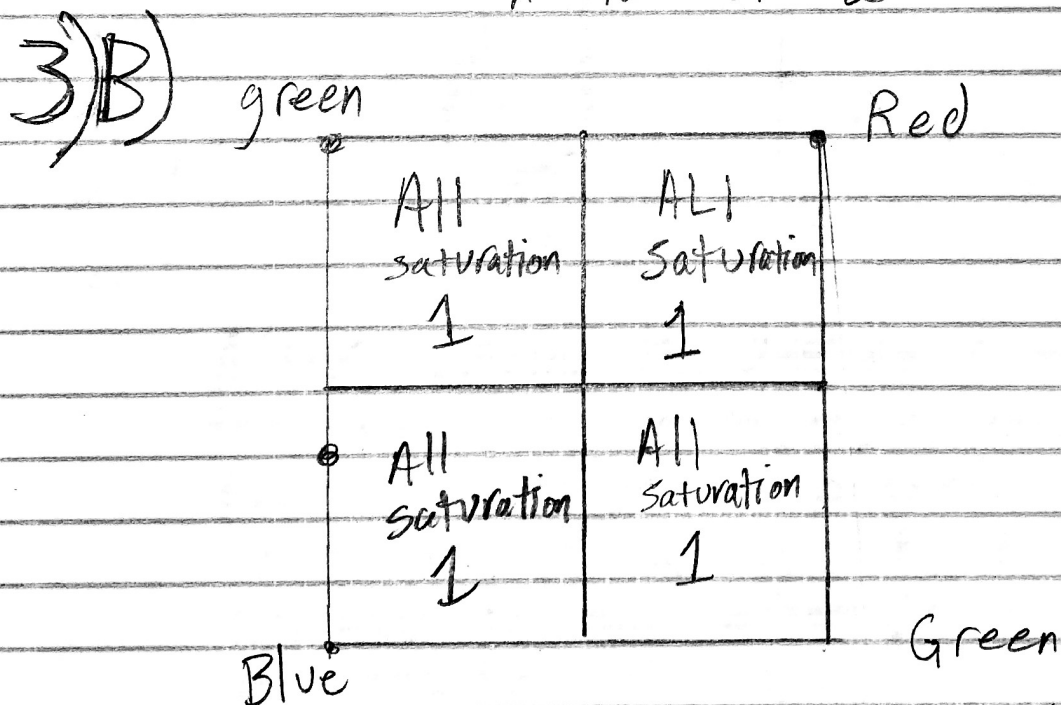 3)B)
green
Red
All
saturation
1
ALl
Saturation
1
All
saturation
1
All
saturation
1
Blue
Green